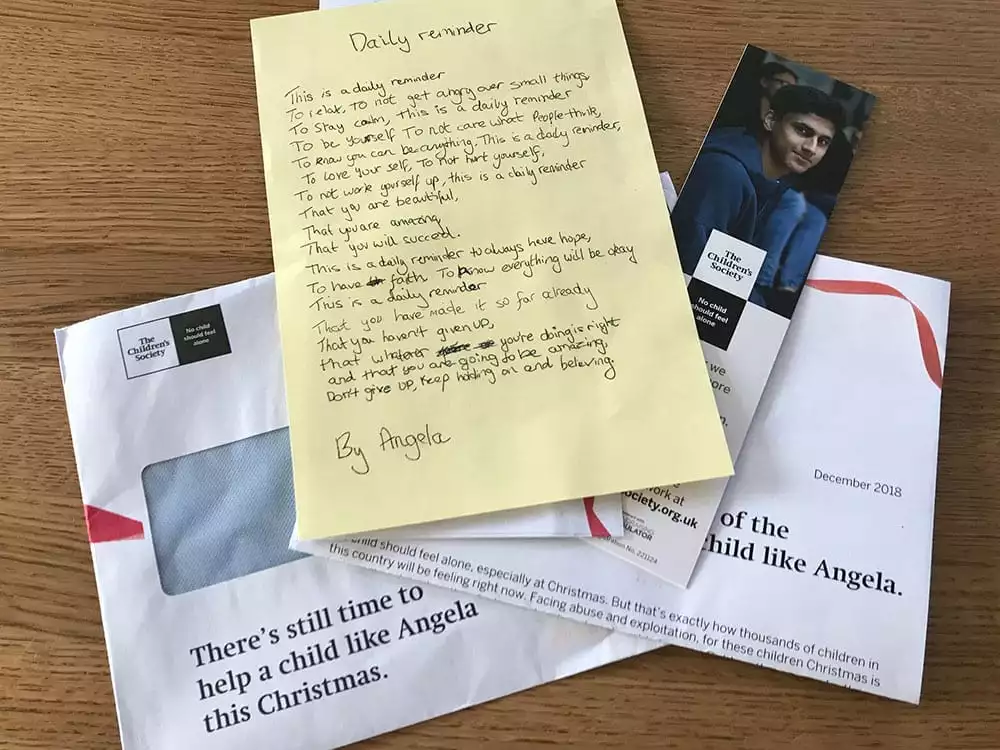 Daily reminder
This is a daily reminder
To relax, To not get angry over small things,
To stay calm, this is a daily reminder
To be yourself To not care what People think,
To know you can be anything. This is a daily reminder,
To love your self, To not hurt yourself,
To not work yourself up, this is a daily reminder
That you are beautiful,
That you are amazing,
That you will succeed.
This is a daily reminder to always have hope,
To have faith. To know everything will be okay
This is a daily reminder
That you have made it so far already
That you haven't given up,
that whatever you're doing is right
and that you are going to be amazing.
Don't give up, keep holding on and believing.
By Angela
The
Children's
Society
No child
should feel
alone
There's still time to
help a child like Angela
this Christmas.
The
Children's
Society
No child
should feel
alone
we
ore
n.
work at
ociety.org.uk
ULATOR
tration No. 221124
December 2018
of the
child like Angela.
child should feel alone, especially at Christmas. But that's exactly how thousands of children in
this country will be feeling right now. Facing abuse and exploitation, for these children Christmas is